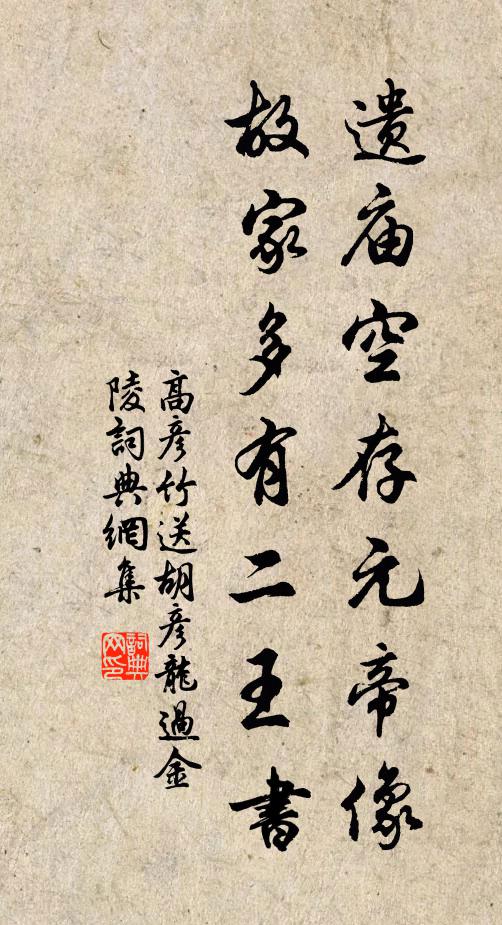 遗庙空存元帝像
故家多有二王書
高彦竹送胡彦龍過金
陵詞典網集
詞典網印